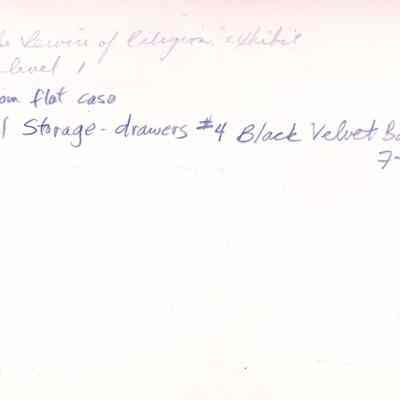 of Religion" exhibit
level 1
flat case
Storage - drawers #4 Black Velvet
7-